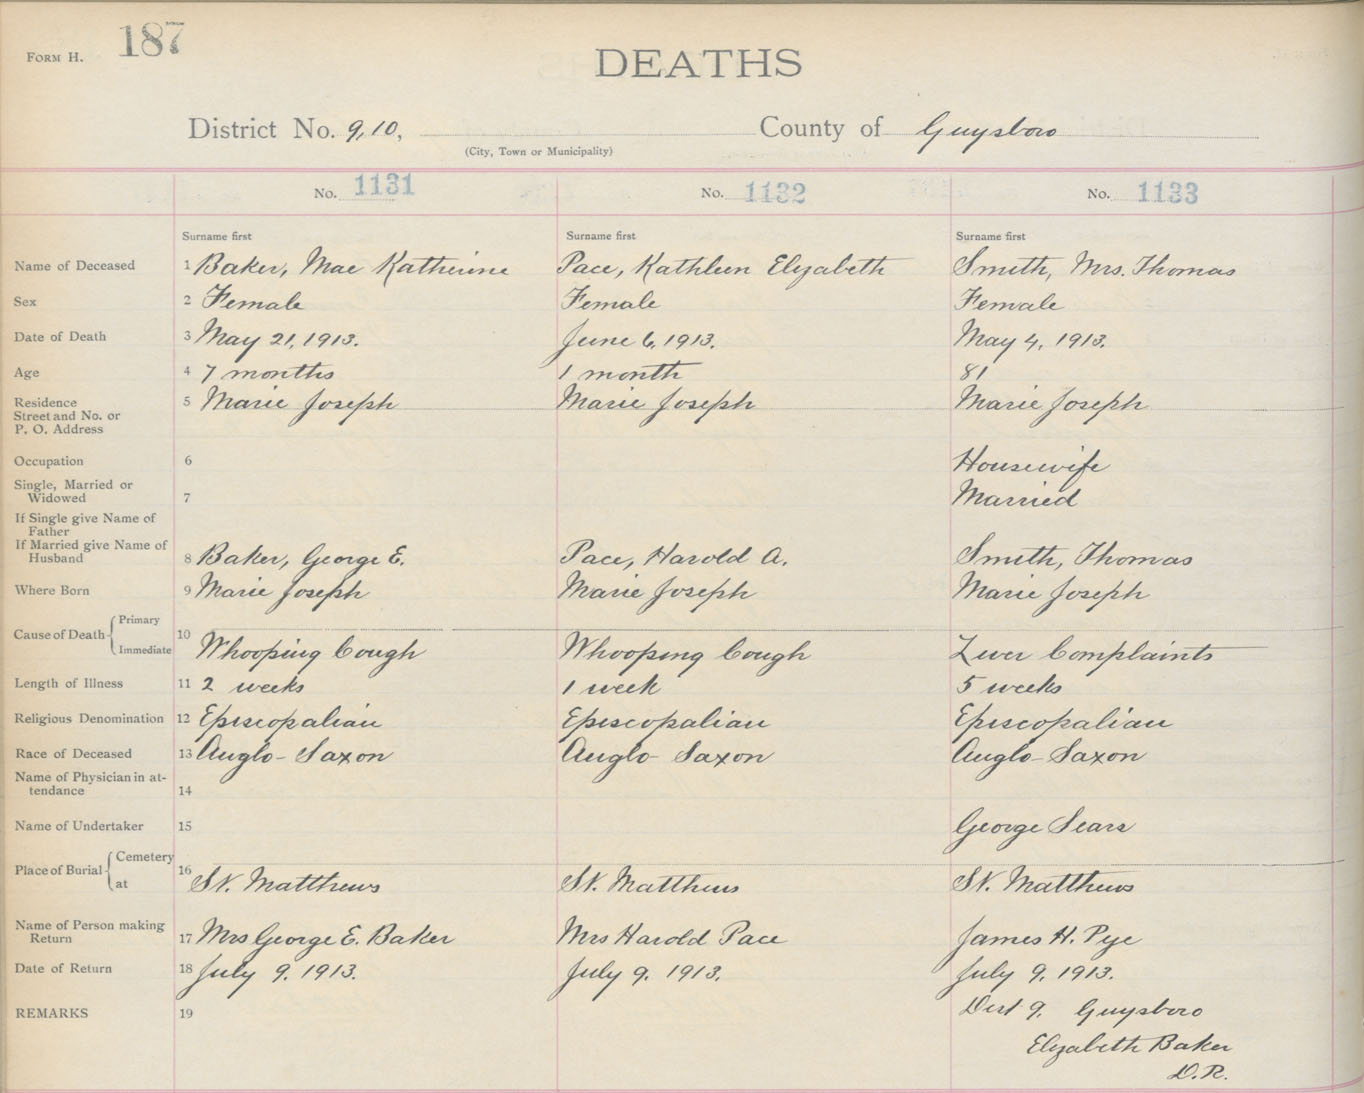 FORM H. 187
DEATHS
District No. 9, 10, County of Guysboro
(City, Town or Municipality)
No. 1131 No. 1132 No. 1133
Surname first Surname first Surname first
Name of Deceased 1 Baker, Mae Katherine Pace, Kathleen Elizabeth Smith, Mrs. Thomas
Sex 2 Female Female Female
Date of Death 3 May 21, 1913. June 6, 1913. May 4, 1913.
Age 4 7 months 1 month 81
Residence
Street and No. or
P. O. Address 5 Marie Joseph Marie Joseph Marie Joseph
Occupation 6 Housewife
Single, Married or
Widowed 7 Married
If Single give Name of
Father
If Married give Name of
Husband 8 Baker, George E. Pace, Harold A. Smith, Thomas
Where Born 9 Marie Joseph Marie Joseph Marie Joseph
Cause of Death Primary
Immediate 10 Whooping Cough Whooping Cough Liver Complaints
Length of Illness 11 2 weeks 1 week 5 weeks
Religious Denomination 12 Episcopalian Episcopalian Episcopalian
Race of Deceased 13 Anglo-Saxon Anglo-Saxon Anglo-Saxon
Name of Physician in at-
tendance 14
Name of Undertaker 15 George Sears
Place of Burial Cemetery
at 16 St. Matthews St. Matthews St. Matthews
Name of Person making
Return 17 Mrs George E. Baker Mrs Harold Pace James H. Pye
Date of Return 18 July 9. 1913. July 9. 1913. July 9. 1913.
REMARKS 19 Dist 9. Guysboro
Elizabeth Baker
D.R.